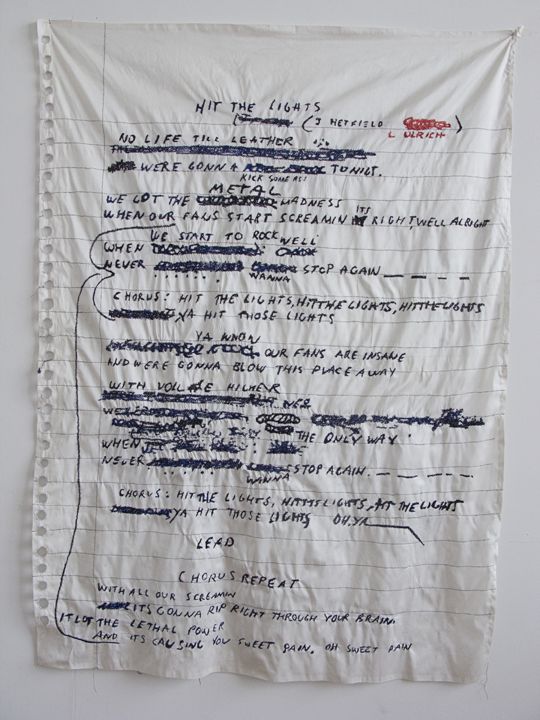 HIT THE LIGHTS
(J HETFIELD )
L ULRICH
NO LIFE TILL LEATHER
WERE GONNA TONIGT.
KICK SOME ASS
METAL
WE GOT THE MADNESS
WHEN OUR FANS START SCREAMIN ITS RIGHT, WELL ALRIGHT
WE START TO ROCK WELL
WHEN
NEVER STOP AGAIN
WANNA
CHORUS: HIT THE LIGHTS, HIT THE LIGHTS, HIT THE LIGHTS
YA HIT THOSE LIGHTS
YA KNOW
OUR FANS ARE INSANE
AND WERE GONNA BLOW THIS PLACE AWAY
WITH HIGHER
THE ONLY WAY
WHEN
NEVER STOP AGAIN.
WANNA
CHORUS: HIT THE LIGHTS, LIGHTS, THE LIGHTS
YA HIT THOSE LIGHTS OH.YA
LEAD
CHORUS REPEAT
WITH ALL OUR SCREAMIN
ITS GONNA RIP RIGHT THROUGH YOUR BRAIN.
THE LETHAL POWER
AND ITS CAUSING YOU SWEET PAIN. OH SWEET PAIN